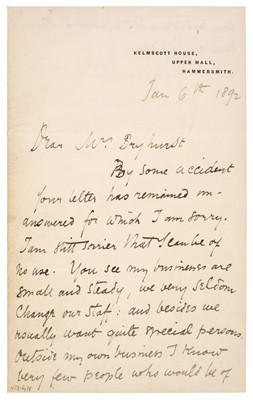 KELMSCOTT HOUSE,
UPPER MALL,
HAMMERSMITH.
Jan 6th 1892
Dear Mrs Dryhurst
By some accident
your letter has remained un-
answered for which I am sorry.
I am still sorrier that I can be of
no use. You see my businesses are
small and steady, we very seldom
change our staff: and besides we
usually want quite special persons.
Outside my own business I know
very few people who would be of